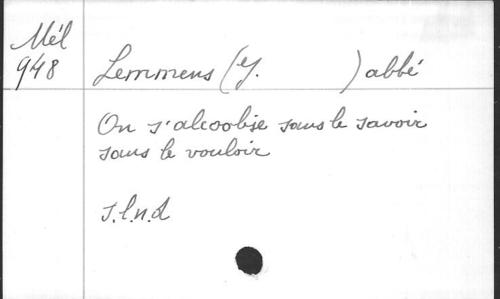 Mél
948
Lemmens (J. ) abbé
On s'alcoolise sans le savoir
sans le vouloir
s.l.n.d